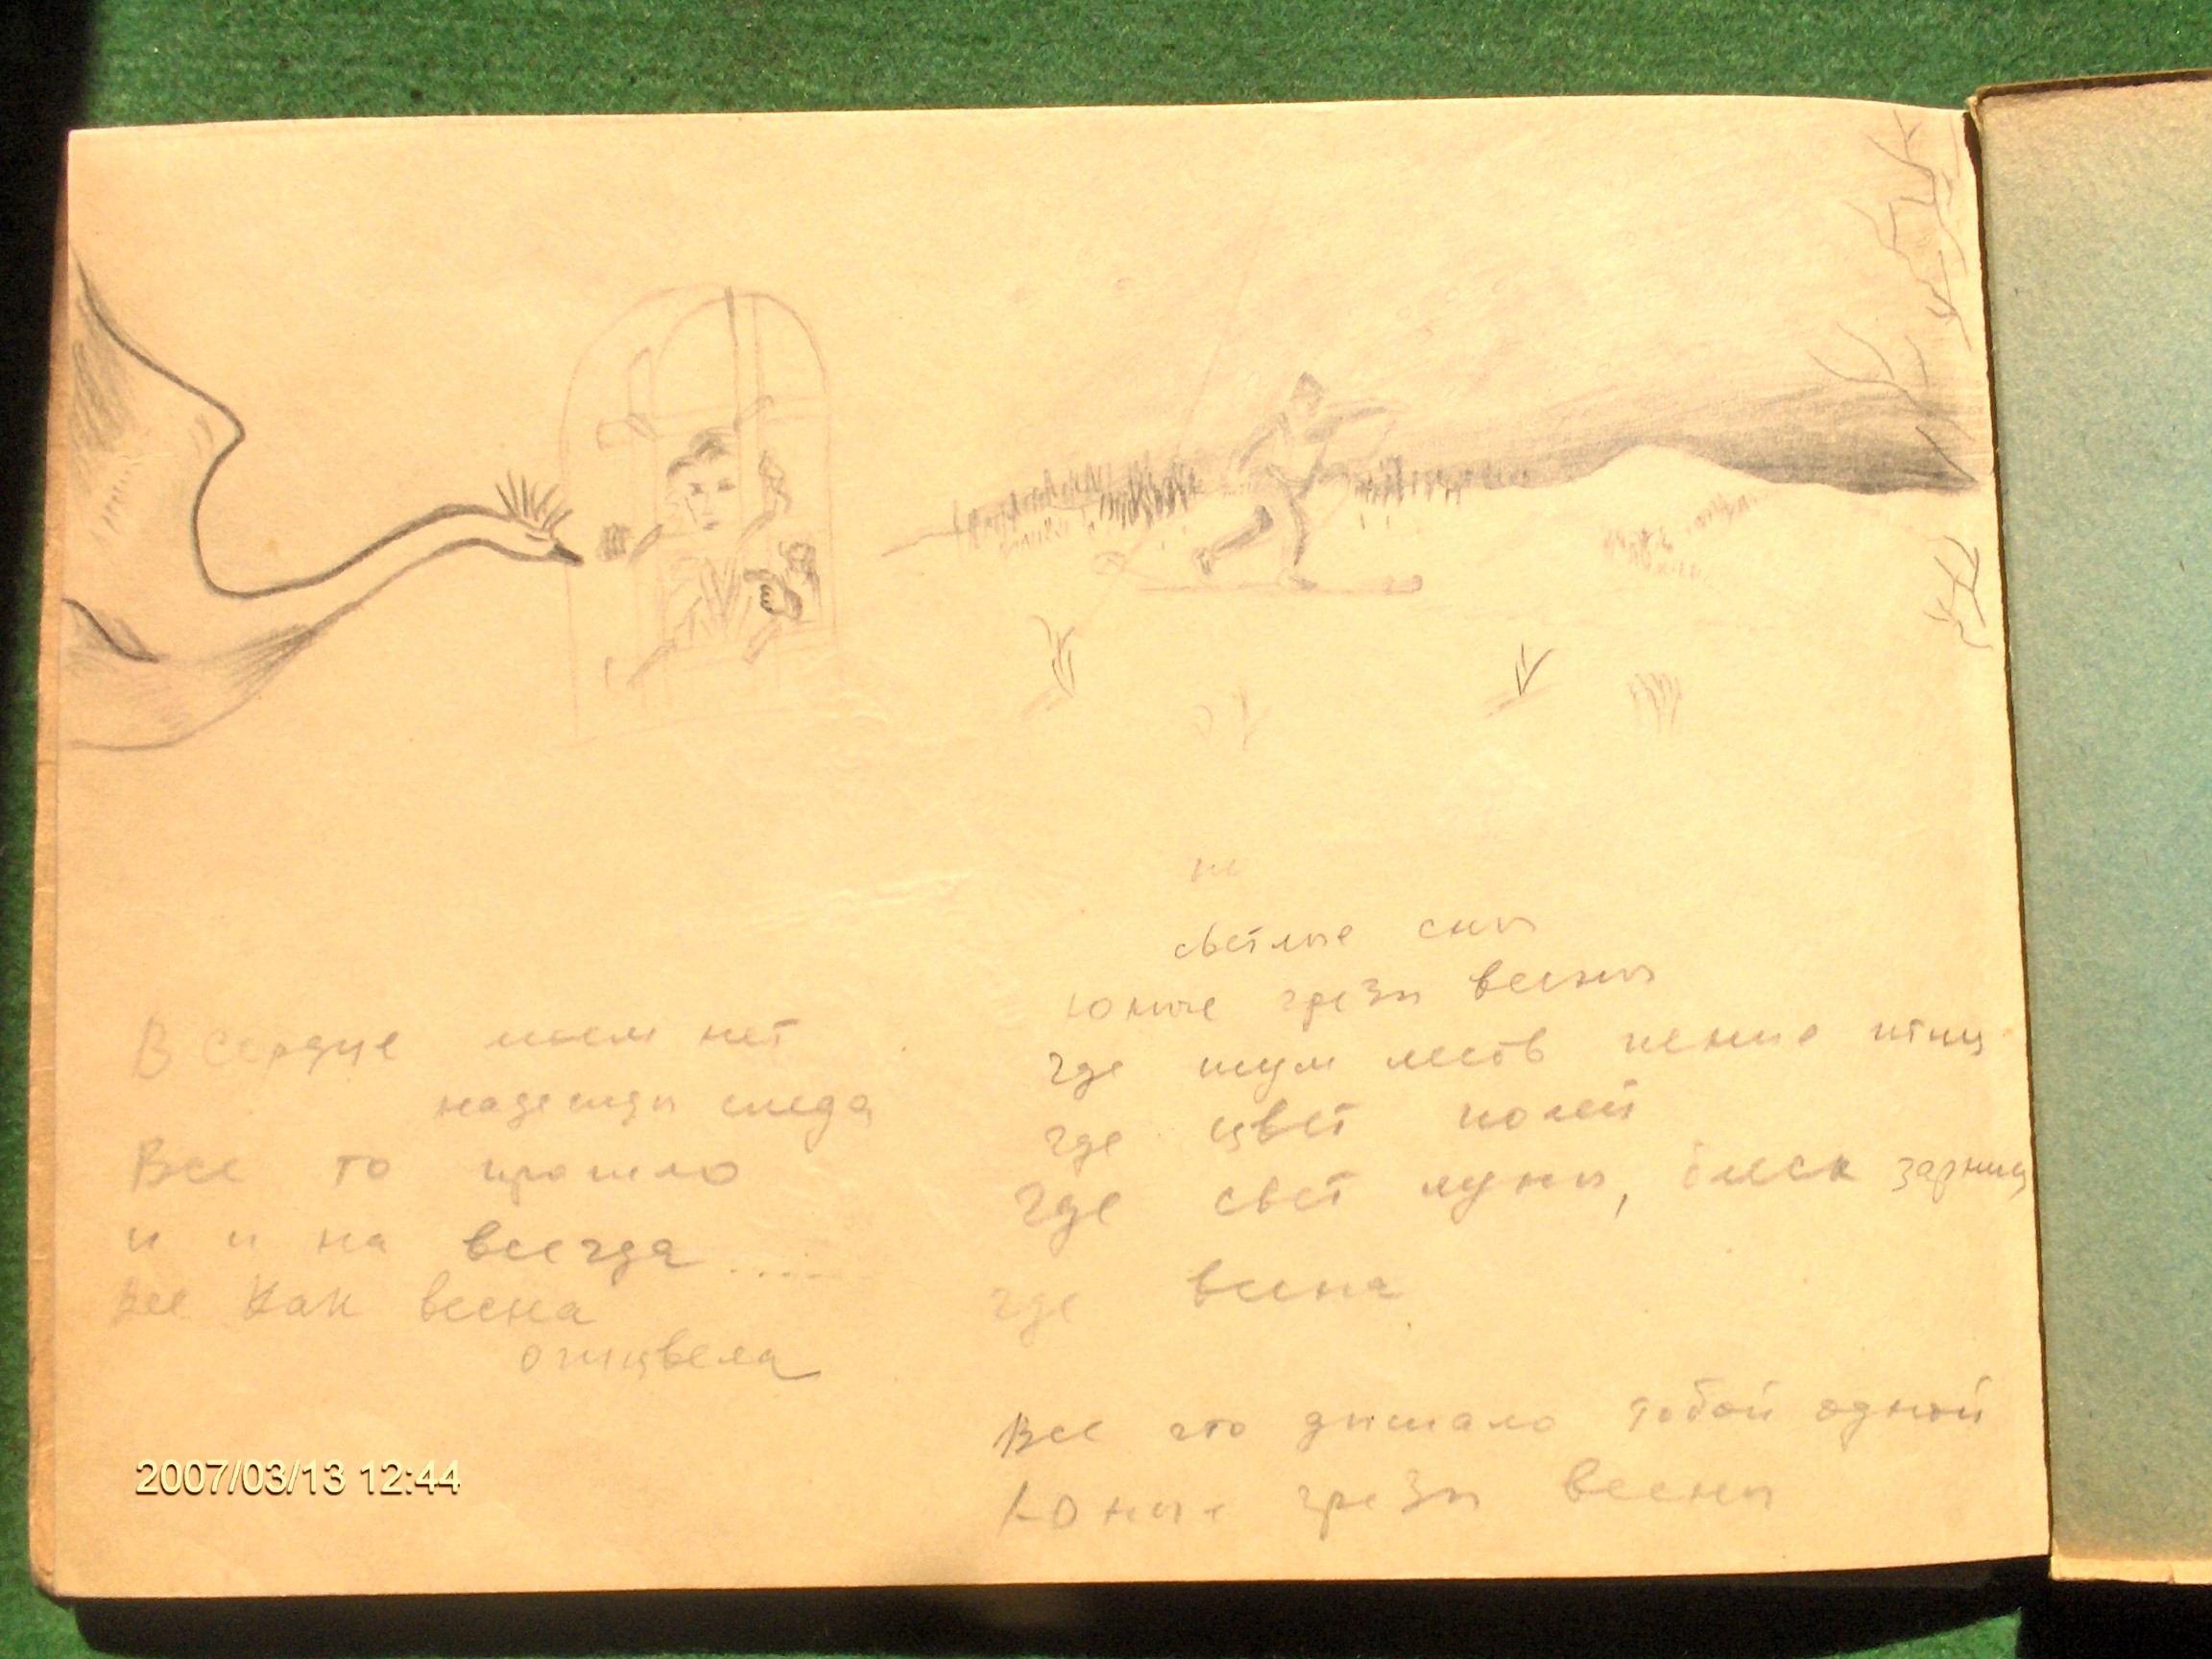 В сердце моем нет
надежды следа
Все то прошло
и и на всегда ....
все как весна
отцвела
не
светлые сны
юные грезы весны
где шум лесов пение птиц
где цвет полей
где свет луны, блеск зарниц
где весна
Все что дышало тобой одной
Юные грезы весны
2007/03/13 12:44